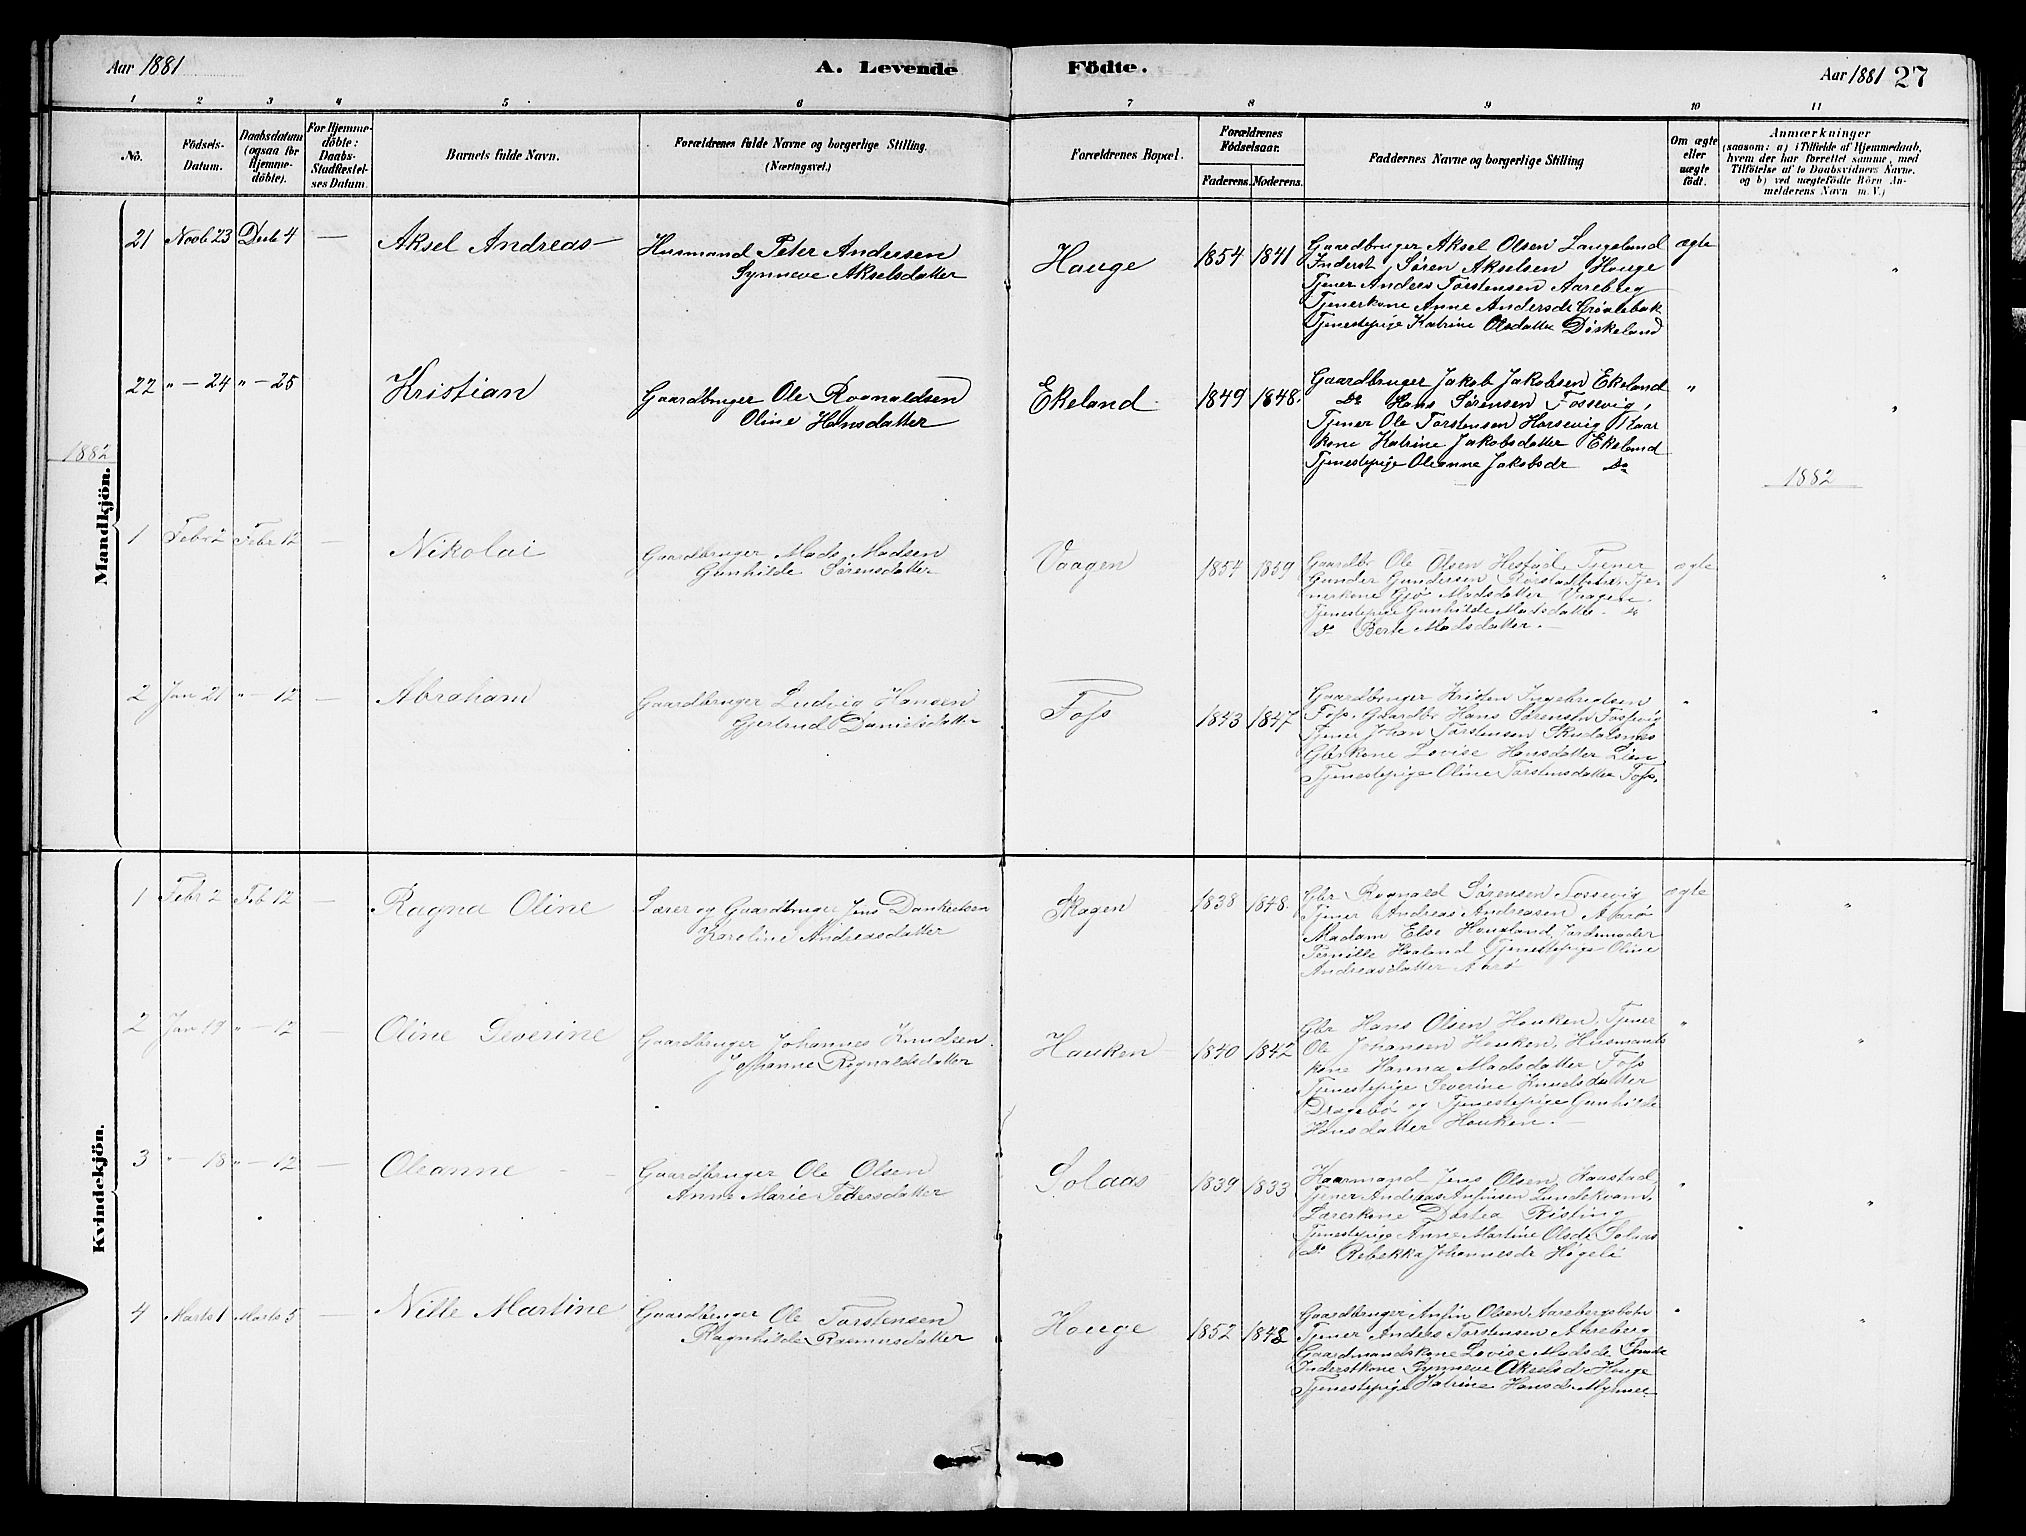 Aar 1881
A. Levende Födte.
Aar 1881 27
1 2 3 4 5 6 7 8 9 10 11
No.
Födsels-Datum.
Daabsdatum (ogsaa for Hjemme-döbte).
For Hjemme-döbte: Daabs-Stadfæstel-ses Datum.
Barnets fulde Navn.
Forældrenes fulde Navne og borgerlige Stilling.
(Næringsvei.)
Forældrenes Bopæl.
Forældrenes Födselsaar.
Faderens. Moderens.
Faddernes Navne og borgerlige Stilling
Om ægte eller uægte födt.
Anmærkninger
(saasom: a) i Tilfælde af Hjemmedaab, hvem der har forrettet samme, med Tilföielse af to Daabsvidners Navne, og b) ved uægtefödte Börn An-melderens Navn m. V.)
Mandkjön.
21 Novb 23 Decb 4 — Aksel Andreas —
Husmand Peter Andersen
Synneve Akselsdatter
Hauge 1854 1841
Gaardbruger Aksel Olsen Langeland
Inderst Sören Akselsen Hauge
Tjener Anders Torstensen Aareberg
Tjenerkone Anne Andersdr
Tjenestepige Katrine Olsdatter
ægte "
22 " — 24 " — 25 Kristian
Gaardbruger Ole Rognaldsen
Oline Hansdatter
Ekeland 1849 1848.
Gaardbruger Jakob Jakobsen Ekeland
Do Hans Sørensen Fossevig,
Tjener Ole Torstensen Horsevig
kone Katrine Jakobsdatter Ekeland
Tjenestepige Oleanne Jakobsdr Do
" "
1882
1882
1 Febr 2 Febr 12 — Nikolai
Gaardbruger Mads Madsen
Gunhilde Sørensdatter
Vaagen 1854 1859
Gaardbr Ole Olsen Hestad, Tjener
Gunder Gundersen Tje-
nerkone Madsdatter Vaagen.
Tjenestepige Gunhilde Madsdatter. Do
Do Berte Madsdatter. —
ægte "
2 Jan 21 " — 12 — Abraham
Gaardbruger Ludvig Hansen
Gjertrud Danielsdatter
Foss 1843 1847
Gaardbruger Kristen
Foss. Gaardbr Hans Sørensen Fossevig
Tjener Johan Torstensen
Gbrkone Lovise Hansdatter Lien
Tjenestepige Oline Torstensdatter Foss.
" "
Kvindekjön.
1 Febr 2 Feb 12 — Ragna Oline
Lærer og Gaardbruger Jens
Karoline Andreasdatter
Skagen 1838 1848.
Gbr Rognald Sørensen Fossevig
Tjener Andreas Andreasen Aarö
Madam Else Haugland, Jordemoder
Pernille Haaland Tjenestepige Oline
Andreasdatter Aarö
ægte "
2 Jan 19 " — 12 — Oline Severine
Gaardbruger Johannes Knudsen.
Johanne Rognaldsdatter
Hauken 1840 1842
Gbr Hans Olsen Hauken. Tjener
Ole Johansen Hauken. Husmands
kone Hanna Madsdatter Foss
Tjenestepige Severine
Dragebö og Tjenestepige Gunhilde
Hansdatter Hauken. —
" "
3 " — 18 " — 12 — Oleanne
Gaardbruger Ole Olsen
Anne Marie Pettersdatter
Solaas 1839 1833
Kaarmand Jens Olsen
Tjener Andreas Anfinsen Lundekvam,
Lærerkone Dortea Risting
Tjenestepige Anne Martine Olsdr Solaas
Do Rebekka Johannesdr
" "
4 Marts 1 Marts 5 — Nille Martine
Gaardbruger Ole Torstensen
Ragnhilde Rasmusdatter
Hauge 1852 1848
Gaardbruger Anfin Olsen Aarebergsbotn
Tjener Anders Torstensen Aareberg
Gaardmandskone Lovise Madsdr
Inderstkone Synneve Akselsdr Hauge
Tjenestepige Katrine Hansdr
" "